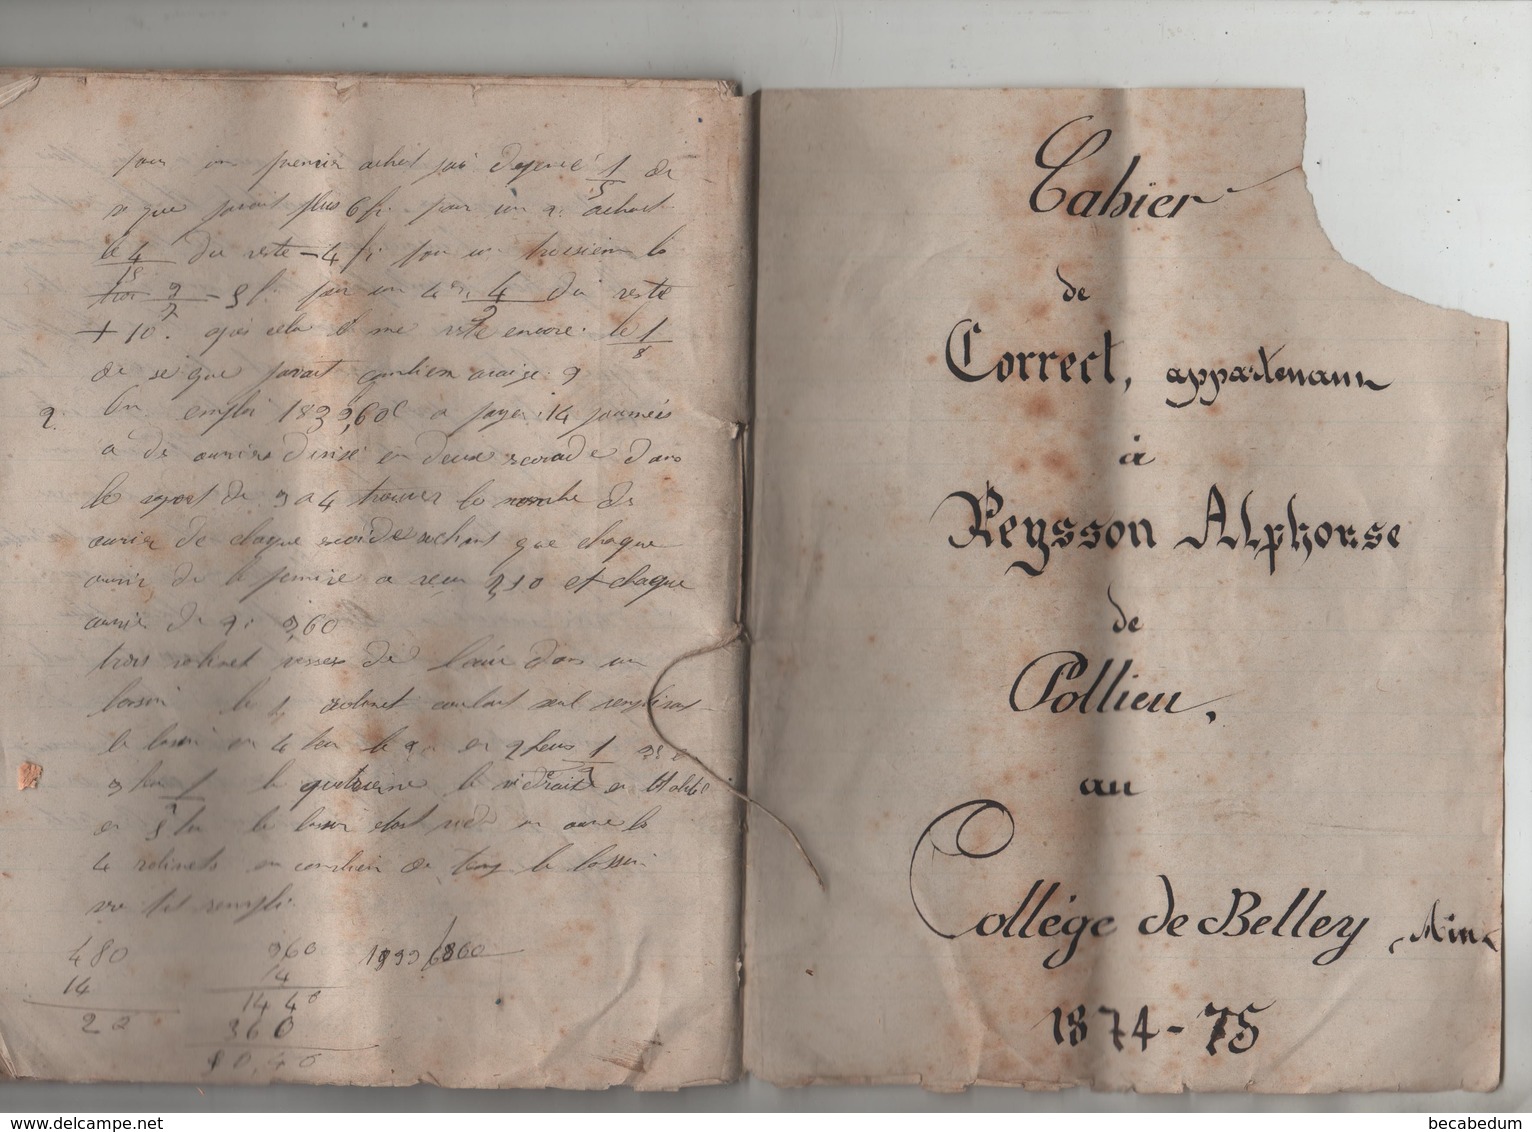 pour un premier achat jai dépensé 1/5 de
se que javait plus 6 fr. pour un 2. achat
le 4/15 du reste - 4 fr pour un troisieme le
2/7 - 5 f. pour un 4e. 4/9 du reste
+ 10f. après cela il me reste encore le 1/8
de se que javait combien avaije ?
2. On emploi 1839,60c a payer 14 journées
a de ouvriers divisé en deux dans
le raport de 3 a 4 trouver le nombre de
ouvrier de chaque sachant que chaque
ouvrier de la premiere a reçu et chaque
ouvrier de 2e 3,60
trois robinet verse de l'eau dans un
bassin le 1 robinet coulant seul remplirait
le bassin en 4 heu le 2e en 2 heures 1/2
3 heu 1/2 le quatrieme le viderait en
en 5 heu le bassin etant vide on ouvre le
4 robinets en combien de temp le bassin
serat il rempli
480 360
14 14
22 1440
360
50,40
Cahier
de
Correct, appartenant
à
Reysson Alphonse
de
Pollieu,
au
Collége de Belley, Ain
1874-75
becabedum